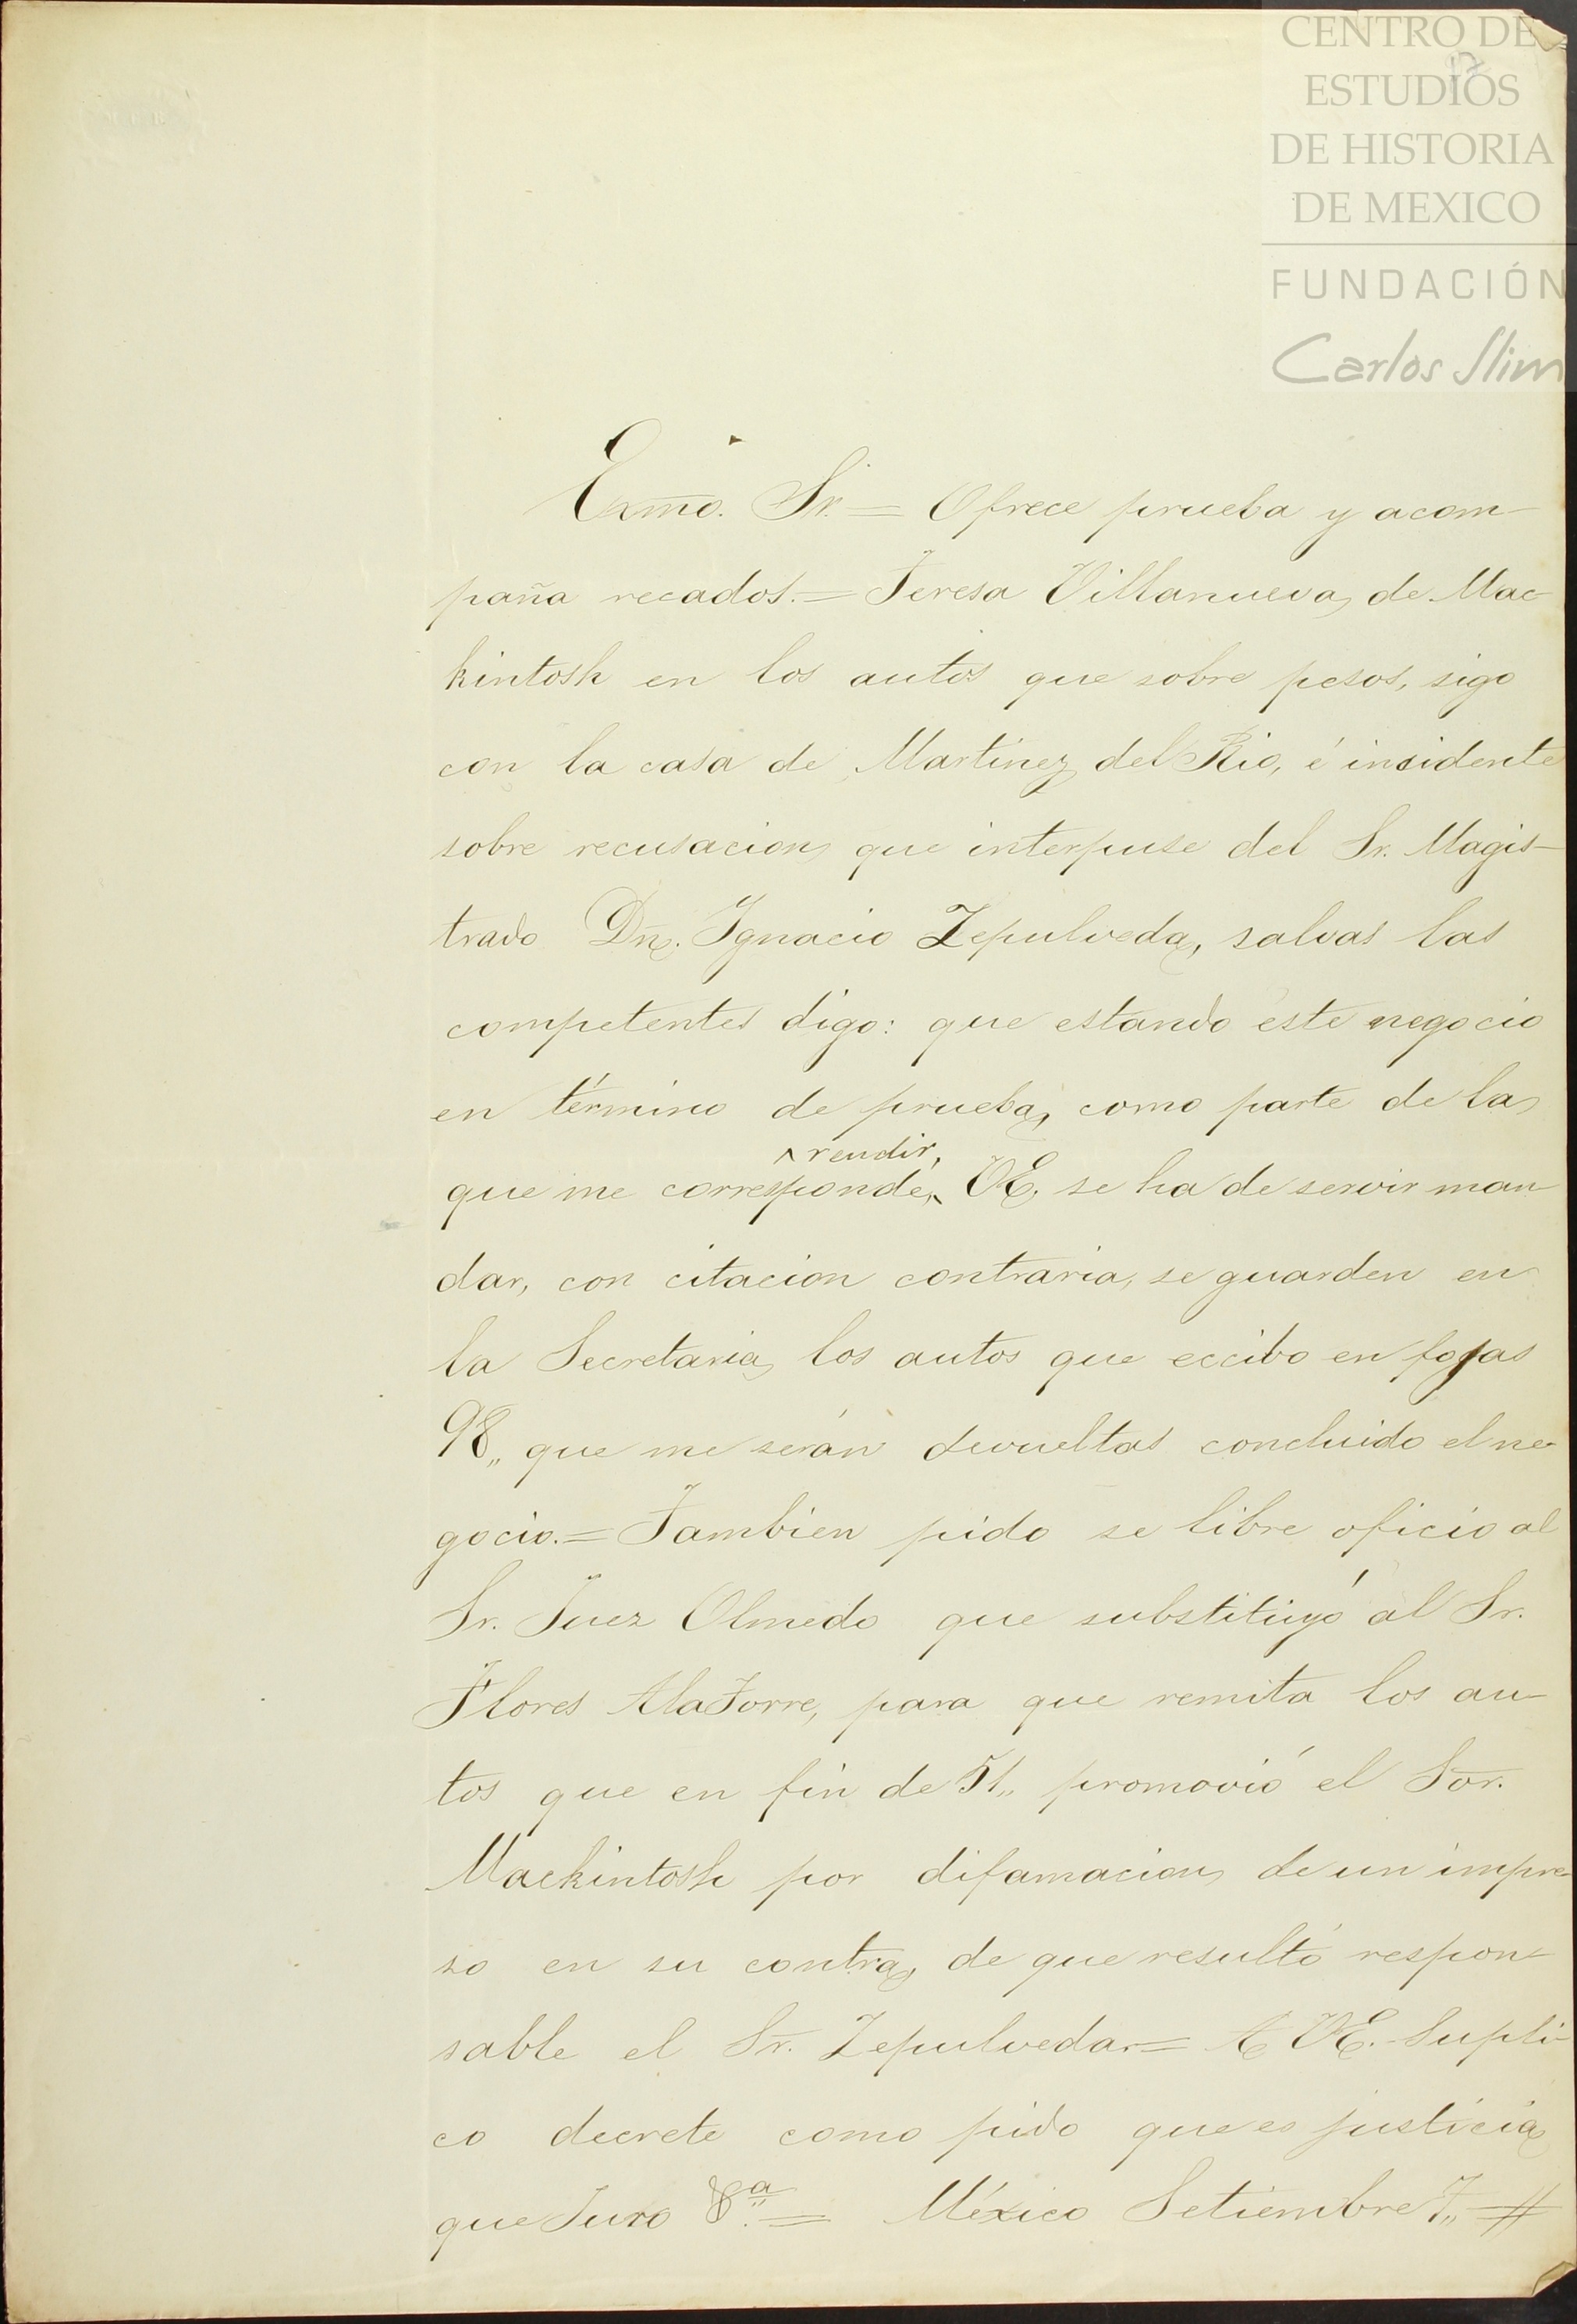 CENTRO DE
ESTUDIOS
DE HISTORIA
DE MEXICO
FUNDACIÓN
Carlos Slim
Exmo. Sr. = Ofrece prueba y acom-
paña recados. = Teresa Villanueva de Mac-
kintosh en los autos que sobre pesos, sigo
con la casa de Martinez del Rio, é insidente
sobre recusacion que interpuse del Sr. Magis-
trado Dn. Ignacio Zepulveda, salvas las
competentes digo: que estando este negocio
en término de prueba, como parte de la
rendir,
que me corresponde, VE. se ha de servir man-
dar, con citacion contraria, se guarden en
la Secretaria los autos que eccibo en fojas
98,, que me serán devueltas concluido el ne-
gocio. = Tambien pido se libre oficio al
Sr. Juez Olmedo que substituyó al Sr.
Flores AlaTorre, para que remita los au-
tos que en fin de 51,, promovió el Sor.
Mackintosh por difamacion de un impre-
so en su contra, de que resultó respon-
sable el Sr. Zepulveda. = A VE. Supli-
co decrete como pido que es justicia
que Juro &a. = México Setiembre 7,, =//=